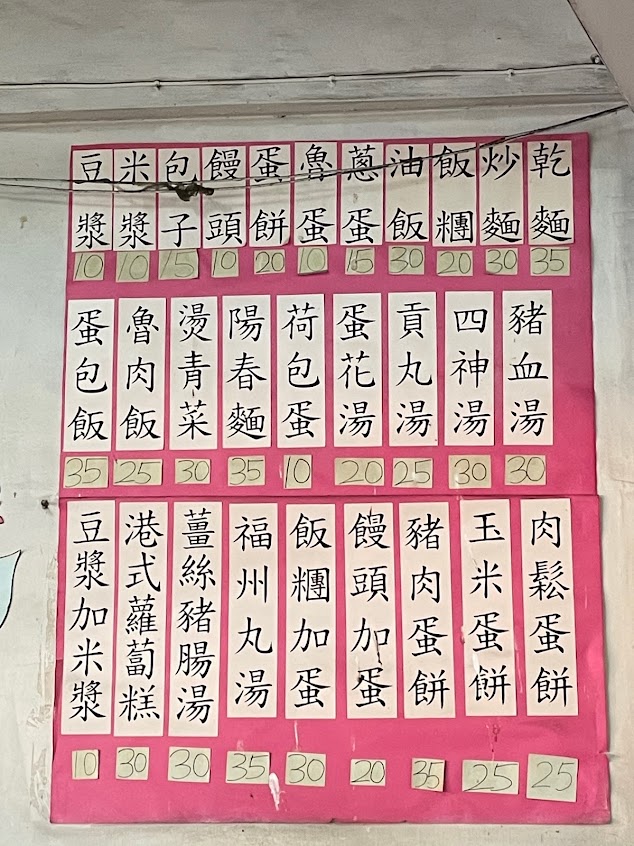 豆漿
10
米漿
10
包子
15
饅頭
10
蛋餅
20
魯蛋
10
蔥蛋
15
油飯
30
飯糰
20
炒麵
30
乾麵
35
蛋包飯
35
魯肉飯
25
燙青菜
30
陽春麵
35
荷包蛋
10
蛋花湯
20
貢丸湯
25
四神湯
30
豬血湯
30
豆漿加米漿
10
港式蘿蔔糕
30
薑絲豬腸湯
30
福州丸湯
35
飯糰加蛋
30
饅頭加蛋
20
豬肉蛋餅
35
玉米蛋餅
25
肉鬆蛋餅
25